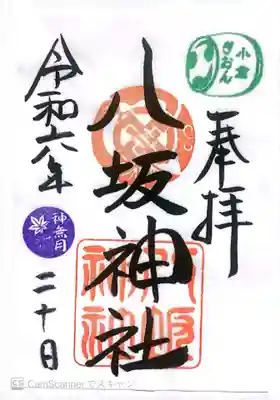 小倉
ぎおん
奉拝
八坂神社
八坂
神社
令和六年
神無月
二十日
CS CamScannerでスキャン